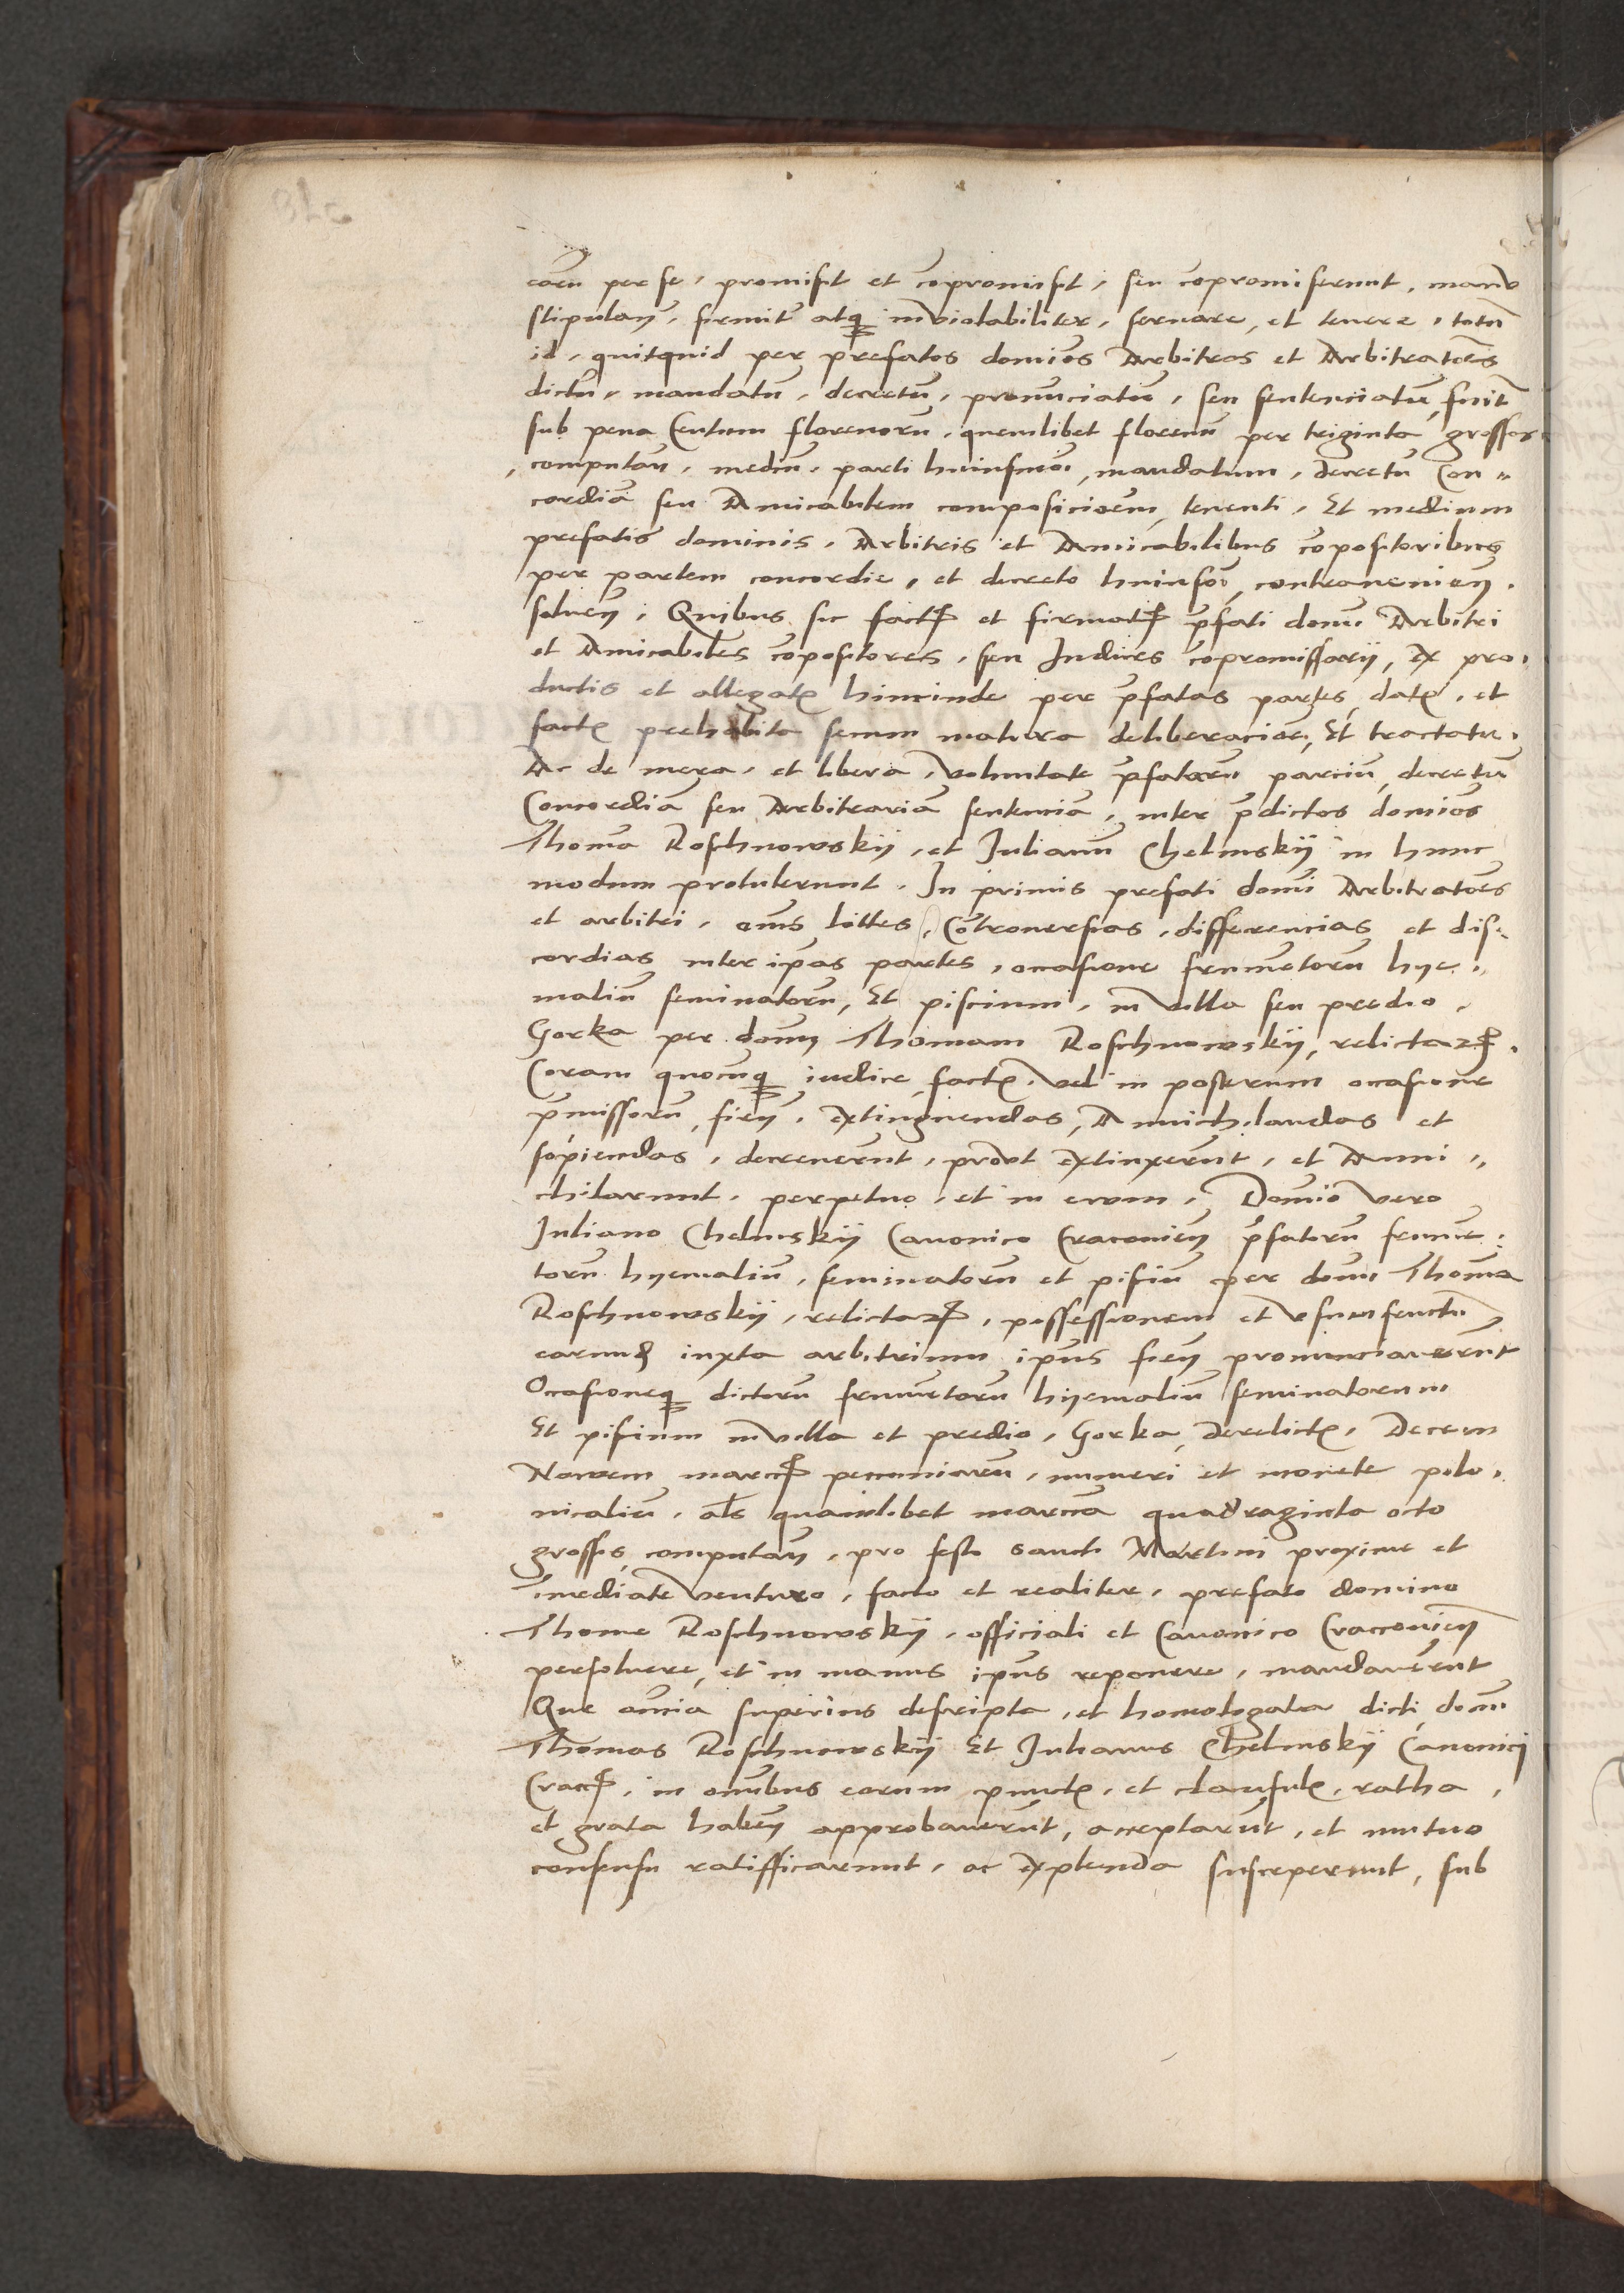 eoru per se, promisit et cōpromisit, seu cōpromiserunt, manu
stipulan̄, firmit̄ atq̄ inviolabiliter, servare, et tenere, totū
id, quitquid per prefatos domīos Arbitros et Arbitratores
dictū, mandatū, decretū, pronūciatū, seu sentenciatū, fuit
sub pena Centum florenorū, quemlibet florenū per triginta grossos
computan̄, mediū, parti huiusmōi, mandatum, decretū Con„
cordiā seu Amicabilem composicioem, tenenti, Et medium
prefatis dominis, Arbitris et Amicabilibus cōpositoribus
per partem concordie, et decreto huiusmōi, contravenien̄.
solven̄, Quibus sic factꝭ et firmatꝭ p̄fati domī Arbitri
et Amicabiles cōpositores, seu Iudices cōpromissarij, ex pro„
ductis et allegatꝭ hincinde per p̄fatas partes, datꝭ, et
factꝭ prehabita secum matura deliberacioē, Et tractatu,
Ac de mera, et libera, voluntate p̄fatarū parciū, decretū
Concordiā seu Arbitrariā sentenciā, inter p̄dictos domīos
Thomā Roschnowskij, et Iulianū Chelmskij in hunc
modum protulerunt. In primis prefati domī Arbitratores
et arbitri, om̄s littes, Cōtroversias, differencias et dis„
cordias inter ip̄as partes, occasione frumētorū hye„
maliū seminatorū, Et piscium, in villa seu predio,
Gorka per dom̄ Thomam Roschnowskij, relictaꝝ.
Coram quocūq̄ iudice, factꝭ, vel in posterum occasione
p̄missorū, fien̄, extinguendas, Annichilandas et
sopiendas, decreverūt, prout extinxerūt, et Anni„
chilarunt, perpetuo, et in evum, Domīo vero
Iuliano Chelmskij Canonico Cracovien̄ p̄fatorū frumē„
torū hyemaliū, seminatorū et pisciū per domī Thomā
Roschnowskij, relictaꝝ, possessionem et usumfructū
earumꝫ iuxta arbitrium ip̄ius fien̄ pronunciaverūt
Occasioneq̄ dictorū frumētorū hijemaliū seminatorum
Et piscium in villa et predio, Gorka, derelictꝭ, Decem
Novem marcꝭ pecuniarū, numeri et monete polo„
nicaliū, al̄s quamlibet marcā quadraginta octo
grossis, computan̄, pro festo sancti Martini proxime et
īmediate venturo, facto et realiter, prefato domino
Thome Roschnowskij, officiali et Canonico Craccovien̄
persolvere, et in manus ip̄ius reponere, mandaverūt
Que om̄ia superius descripta, et homologata dicti domī
Thomas Roschnowskij Et Iulianus Chelmskij Canonici
Craccꝭ, in om̄ibus eorum punctꝭ, et clausulꝭ, ratha,
et grata haben̄ approbaverūt, acceptarūt, et mutuo
consensu ratifficarunt, ac explenda susceperunt, sub